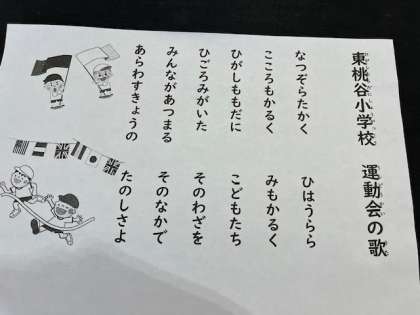 東桃谷小学校 運動会の歌
なつぞらたかく ひはうらら
こころもかるく みもかるく
ひがしももだに こどもたち
ひごろみがいた そのわざを
みんながあつまる そのなかで
あらわすきょうの たのしさよ